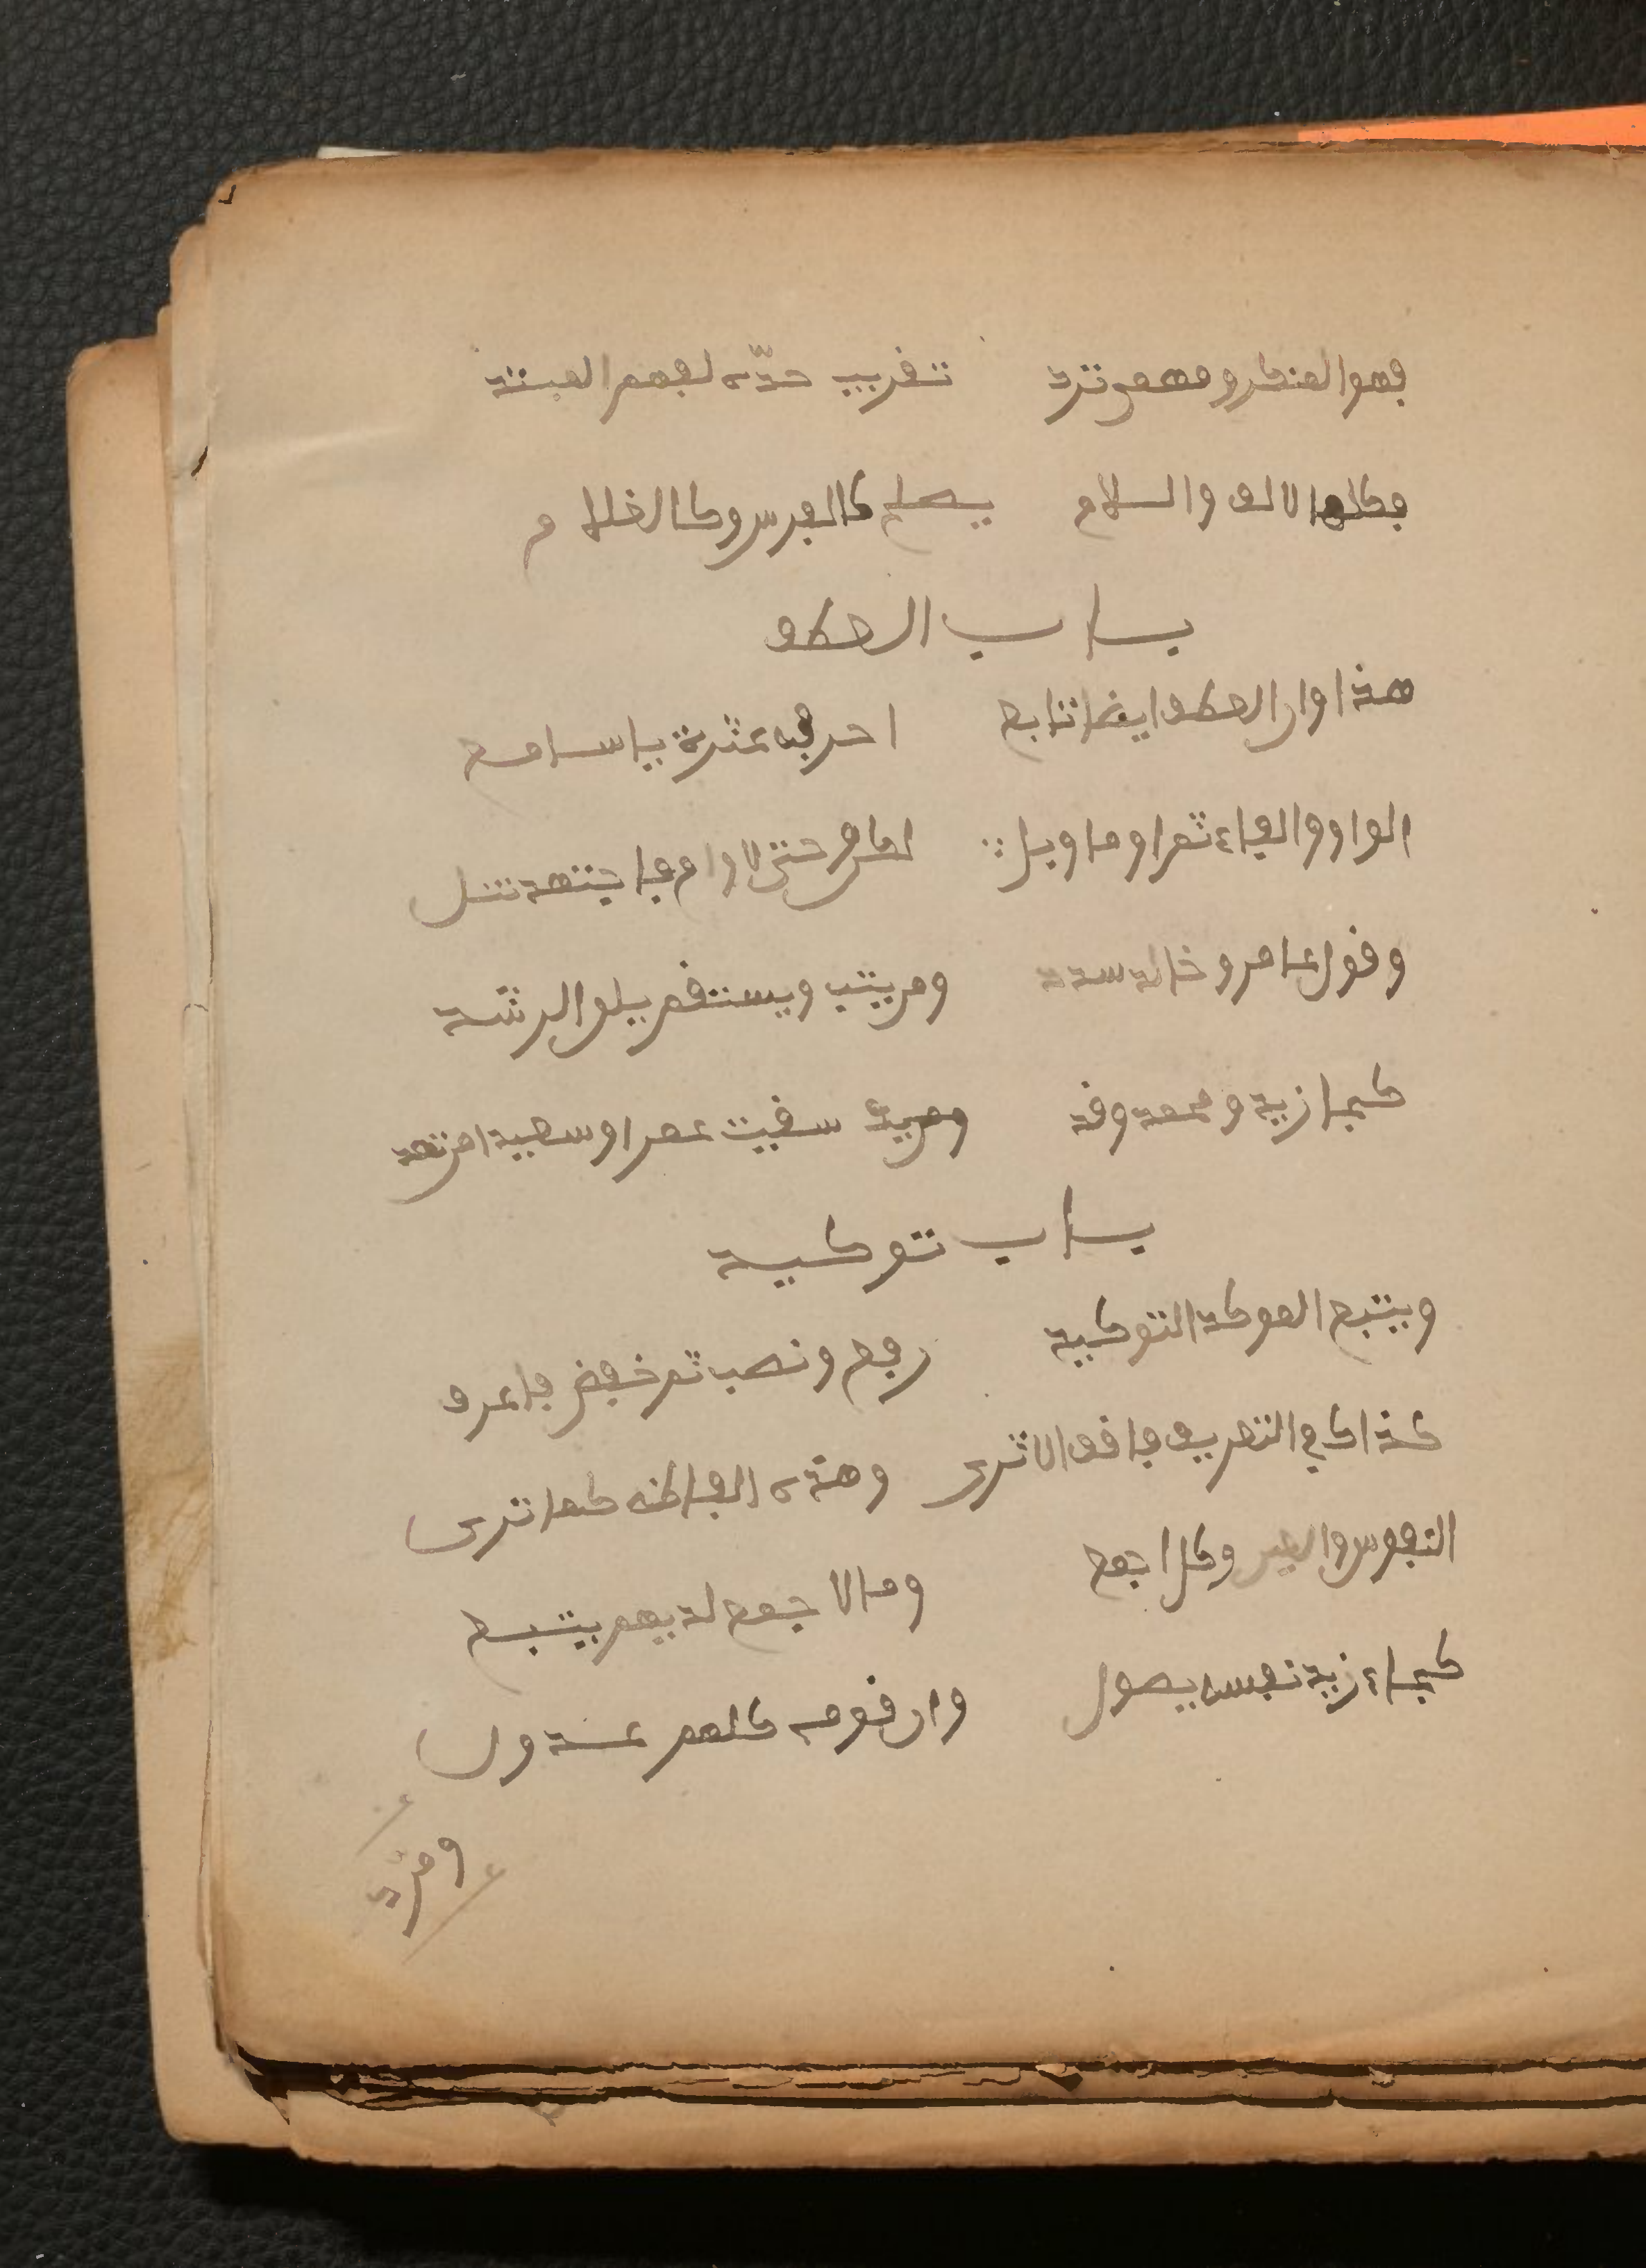 فهو المنكر ومهمى ترد تقريب حدّه لفهم المبتد
فكلما لالف واللام يصلح كالفرس وكالغلام
باب العطف
هذا وان العطف ايضا تابع احرفه عشرة ياسامع
الواو والفاء ثم او اما وبل لكن حتى لا وام فاجتهد تنل
وقول عامر وخالد سدد ومن يتب ويستقم يلق الرشد
كجا زيد ومحمد وقد سقيت عمرا وسعيدا من ثمد
باب توكيد
ويتبع الموكد التوكيد رفع ونصب ثم خفض فاعرف
كذاك في التعريف فاقف الاثرى وهذه الفاظه كما ترى
النفس والعين وكل اجمع وما لاجمع لديهم يتبع
كجاء زيد نفسه يصول وان قومه كلهم عدول
ومر ذ